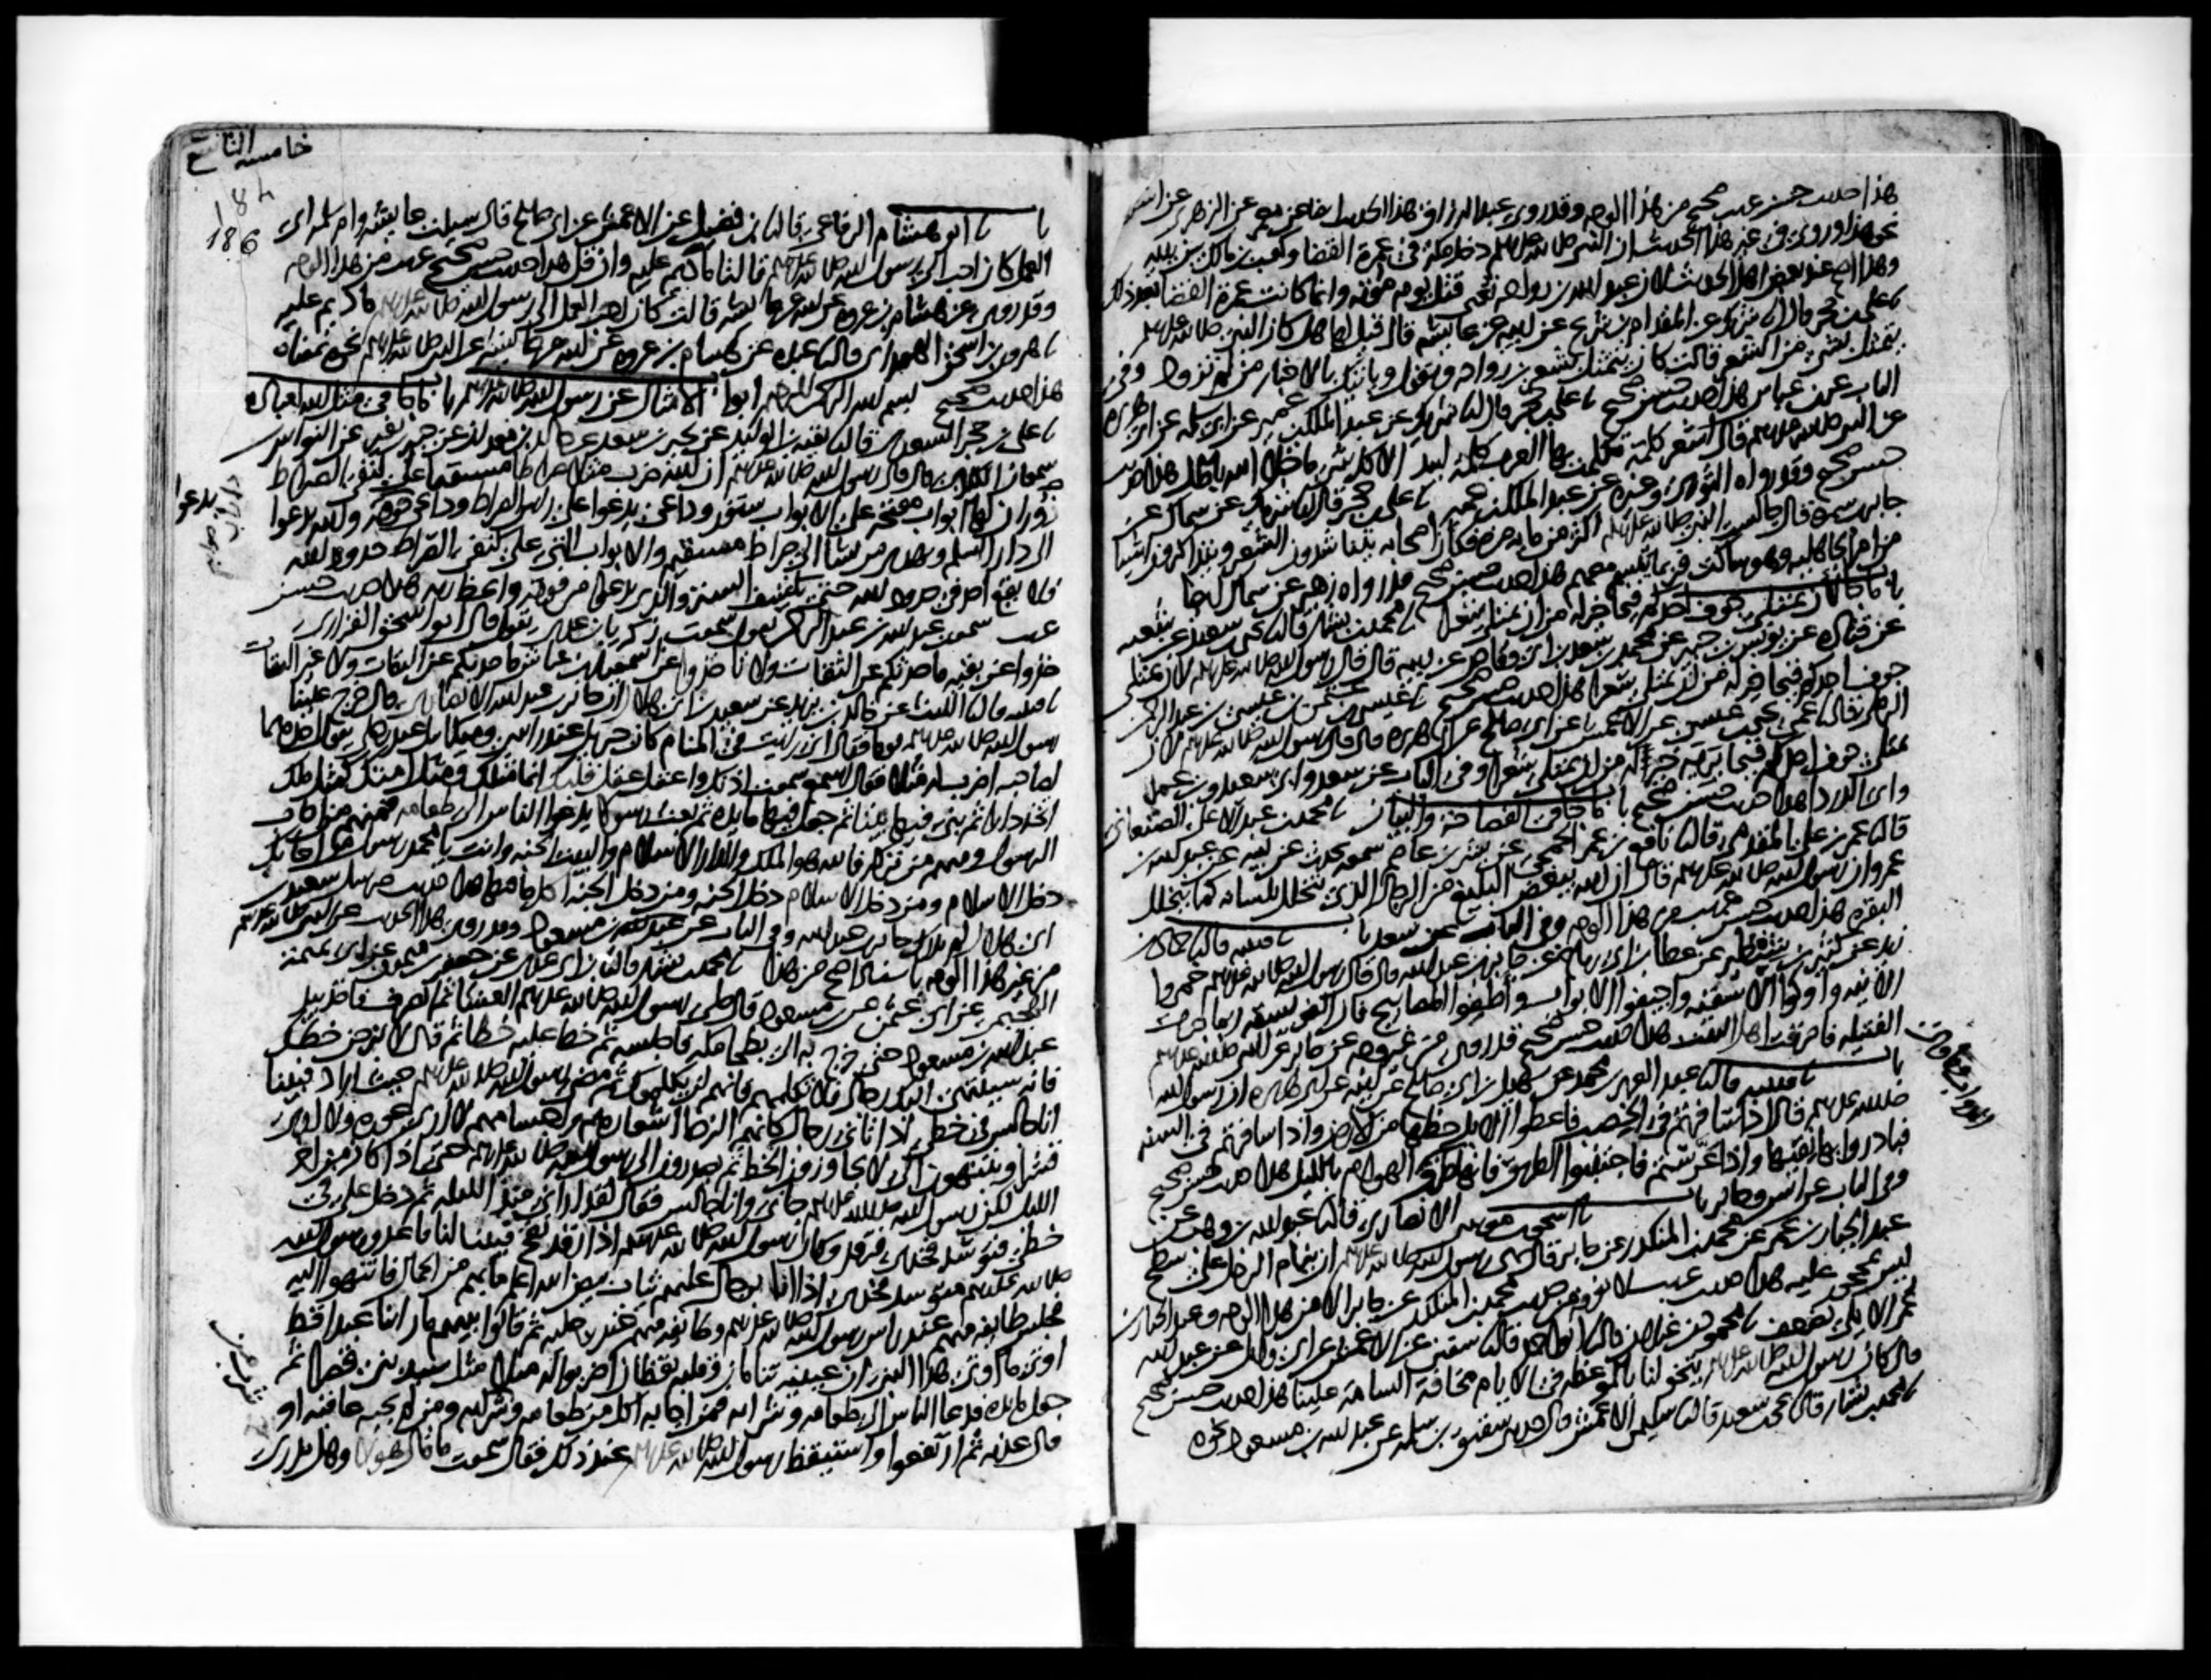 هذا حديث حسن غريب صحيح من هذا الوجه وقد روى عبد الرزاق هذا الحديث ايضا عن معمر عن الزهري عن انس
نحو هذا وروي في غير هذا الحديث ان النبي صلى الله عليه وسلم دخل مكة في عمرة القضا وكعب بن مالك بين يديه
وهذا اصح عند بعض اهل الحديث لان عبد الله بن رواحه قتل يوم موته وانما كانت عمرة القضا بعد ذلك
علي بن حجر قال انا شريك عن المقدام بن شريح عن ابيه عن عايشة قال قيل لها هل كان النبي صلى الله عليه وسلم
يتمثل بشي من الشعر قالت كان يتمثل بشعر بن رواحه ويقول وياتيك بالاخبار من لم تزود وفي
الباب عن بن عباس هذا حديث حسن صحيح علي بن حجر قال انا شريك عن عبد الملك بن عمير عن ابي سلمه عن ابي هريرة
عن النبي صلى الله عليه وسلم قال اشعر كلمة تكلمت بها العرب كلمة لبيد الا كل شي ما خلا الله باطل هذا حديث
حسن صحيح وقد رواه الثوري وغيره عن عبد الملك بن عمير علي بن حجر قال انا شريك عن سماك عن
جابر بن سمرة قال جالست النبي صلى الله عليه وسلم اكثر من مايه مره فكان اصحابه يتناشدون الشعر ويتذاكرون اشيا
من امر الجاهليه وهو ساكت فربما يتبسم معهم هذا حديث حسن صحيح وقد رواه زهير عن سماك ايضا
باب ما جا لان يمتلي جوف احدكم قيحا خير له من ان يمتلي شعرا محمد بن بشار قال نا يحيى بن سعيد عن شعبه
عن قتاده عن يونس بن جبير عن محمد بن سعد بن ابي وقاص عن ابيه قال قال رسول الله صلى الله عليه وسلم لان يمتلي
جوف احدكم قيحا خير له من ان يمتلي شعرا هذا حديث حسن صحيح عيسى بن عثمن بن عيسى بن عبد الرحمن
الرملي قال نا عمي يحيى بن عيسى عن الاعمش عن ابي صالح عن ابي هريره قال قال رسول الله صلى الله عليه وسلم لان
يمتلي جوف احدكم قيحا يريه خير له من ان يمتلي شعرا وفي الباب عن سعد وابي سعيد وبن عمر
وابي الدرداء هذا حديث حسن صحيح باب ما جا في الفصاحة والبيان محمد بن عبد الاعلى الصنعاني
قال نا عمر بن علي المقدمي قال نا نافع بن عمر الجمحي عن بشر بن عاصم سمعه يحدث عن ابيه عن عبد الله بن
عمرو ان رسول الله صلى الله عليه وسلم قال ان الله يبغض البليغ من الرجال الذي يتخلل بلسانه كما يتخلل
البقره هذا حديث حسن غريب من هذا الوجه وفي الباب عن سعد باب قتيبه قال نا حماد بن
زيد عن كثير بن شنظير عن عطا بن ابي رباح عن جابر بن عبد الله قال قال رسول الله صلى الله عليه وسلم خمروا
الانيه واوكوا الاسقيه واجيفوا الابواب واطفوا المصابيح فان الفويسقه ربما جرت
الفتيله فاحرقت اهل البيت هذا حديث حسن صحيح قد روي من غير وجه عن جابر عن النبي صلى الله عليه وسلم
باب قتيبه قال نا عبد العزيز بن محمد عن سهيل بن ابي صالح عن ابيه عن ابي هريره ان رسول الله
صلى الله عليه وسلم قال اذا سافرتم في الخصب فاعطوا الابل حظها من الارض واذا سافرتم في السنه
فبادروا بها نقيها واذا عرستم فاجتنبوا الطريق فانها طرق الهوام بالليل هذا حديث حسن صحيح
وفي الباب عن انس وجابر باب اسحق بن موسى الانصاري قال نا عبد الله بن وهب عن
عبد الجبار بن عمر عن محمد بن المنكدر عن جابر قال نهى رسول الله صلى الله عليه وسلم ان ينام الرجل على سطح
ليس بمحجور عليه هذا حديث غريب لا نعرفه من حديث محمد بن المنكدر عن جابر الا من هذا الوجه وعبد الجبار بن
عمر الايلي يضعف محمود بن غيلان قال نا ابو احمد قال نا سفين عن الاعمش عن ابي وايل عن عبد الله
قال كان رسول الله صلى الله عليه وسلم يتخولنا بالموعظه في الايام مخافة السامة علينا هذا حديث حسن صحيح
محمد بن بشار قال نا يحيى بن سعيد قال نا سليمن الاعمش قال حدثني شقيق بن سلمه عن عبد الله بن مسعود نحوه
خامسه التاسع
184
186
باب ابو هشام الرفاعي قال نا بن فضيل عن الاعمش عن ابي صالح قال سيلت عايشه وام سلمه اي
العمل كان احب الى رسول الله صلى الله عليه وسلم قالتا ما ديم عليه وان قل هذا حديث حسن صحيح غريب من هذا الوجه
وقد روي عن هشام بن عروه عن ابيه عن عايشه قالت كان احب العمل الى رسول الله صلى الله عليه وسلم ما ديم عليه
هرون بن اسحق الهمداني قال نا عبده عن هشام بن عروه عن ابيه عن عايشه عن النبي صلى الله عليه وسلم نحوه بمعناه
هذا حديث صحيح بسم الله الرحمن الرحيم ابواب الامثال عن رسول الله صلى الله عليه وسلم باب ما جا في مثل الله لعباده
علي بن حجر السعدي قال نا بقيه بن الوليد عن بحير بن سعد عن خالد بن معدان عن جبير بن نفير عن النواس بن
سمعان الكلابي قال قال رسول الله صلى الله عليه وسلم ان الله ضرب مثلا صراطا مستقيما على كنفي الصراط
زوران لهما ابواب مفتحه على الابواب ستور وداعي يدعوا على راس الصراط وداعي فوقه والله يدعوا
الى دار السلم ويهدي من يشا الى صراط مستقيم والابواب التي على كنفي الصراط حدود الله
فلا يقع احد في حدود الله حتى يكشف الستر والذي يدعوا من فوقه واعظ ربه هذا حديث حسن
غريب سمعت عبد الله بن عبد الرحمن يقول سمعت زكريا بن عدي يقول قال ابو اسحق الفزاري
خذوا عن بقيه ما حدثكم عن الثقات ولا تاخذوا عن اسمعيل بن عياش ما حدثكم عن الثقات ولا غير الثقات
قتيبه قال نا الليث عن خالد بن يزيد عن سعيد بن ابي هلال ان جابر بن عبد الله الانصاري قال خرج علينا
رسول الله صلى الله عليه وسلم يوما فقال اني رايت في المنام كان جبريل عند راسي وميكايل عند رجلي يقول احدهما
لصاحبه اضرب له مثلا فقال اسمع سمعت اذنك واعقل عقل قلبك انما مثلك ومثل امتك كمثل ملك
اتخذ دارا ثم بنى فيها بيتا ثم جعل فيها مايده ثم بعث رسولا يدعوا الناس الى طعامه فمنهم من اجاب
الرسول ومنهم من تركه فالله هو الملك والدار الاسلام والبيت الجنه وانت يا محمد رسول من اجابك
دخل الاسلام ومن دخل الاسلام دخل الجنه ومن دخل الجنه اكل ما فيها هذا حديث مرسل سعيد بن
ابي هلال لم يدرك جابر بن عبد الله وفي الباب عن عبد الله بن مسعود وقد روي هذا الحديث عن النبي صلى الله عليه وسلم
من غير هذا الوجه باسناد اصح من هذا محمد بن بشار قال نا بن ابي عدي عن جعفر بن ميمون عن ابي تميمة
الهجيمي عن ابي عثمن عن بن مسعود قال صلى رسول الله صلى الله عليه وسلم العشا ثم انصرف فاخذ بيد
عبد الله بن مسعود حتى خرج به الى بطحا مكه فاجلسه ثم خط عليه خطا ثم قال لا تبرحن خطك
فانه سينتهي اليك رجال فلا تكلمهم فانهم لن يكلموك ثم مضى رسول الله صلى الله عليه وسلم حيث اراد فبينا
انا جالس في خطي اذ اتاني رجال كانهم الزط اشعارهم واجسامهم لا ارى عورة ولا ارى
قشرا وينتهون الي لا يجاوزون الخط ثم يصدرون الى رسول الله صلى الله عليه وسلم حتى اذا كان من اخر
الليل لكن رسول الله صلى الله عليه وسلم جاني وانا جالس فقال لقد اراني منذ الليله ثم دخل علي في
خطي فتوسد فخذي فرقد وكان رسول الله صلى الله عليه وسلم اذا رقد نفخ فبينا انا قاعد ورسول الله
صلى الله عليه وسلم متوسد فخذي اذا انا برجال عليهم ثياب بيض الله اعلم ما بهم من الجمال فانتهوا اليه
فجلس طايفه منهم عند راس رسول الله صلى الله عليه وسلم وطايفه منهم عند رجليه ثم قالوا بينهم ما راينا عبدا قط
اوتي ما اوتي هذا النبي ان عينيه تنامان وقلبه يقظان اضربوا له مثلا مثل سيد بنى قصرا ثم
جعل مايده فدعا الناس الى طعامه وشرابه فمن اجابه اكل من طعامه وشرابه ومن لم يجبه عاقبه او
قال عذبه ثم ارتفعوا واستيقظ رسول الله صلى الله عليه وسلم عند ذلك فقال سمعت ما قال هولا وهل تدري